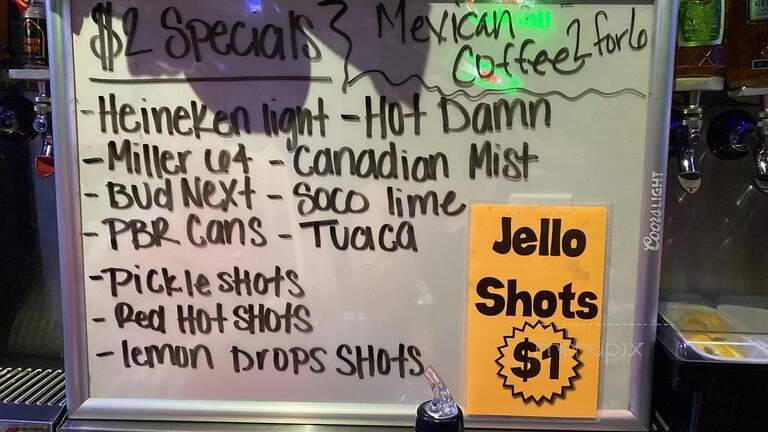 $2 Specials
Mexican
Coffee 2 for 6
- Heineken light - Hot Damn
- Miller 64 - Canadian Mist
- Bud Next - Soco lime
- PBR Cans - Tuaca
- Pickle shots
- Red Hot shots
- lemon Drops shots
Jello
Shots
$1
Coors LIGHT